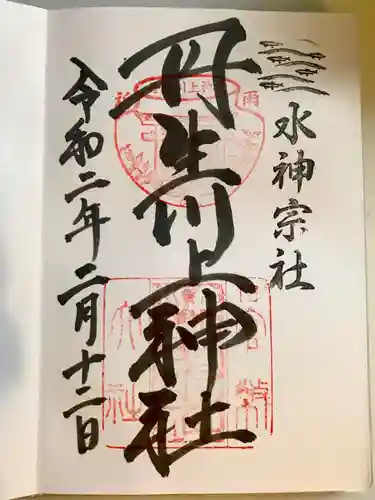 水神宗社
丹生川上神社
令和二年二月十二日
雨